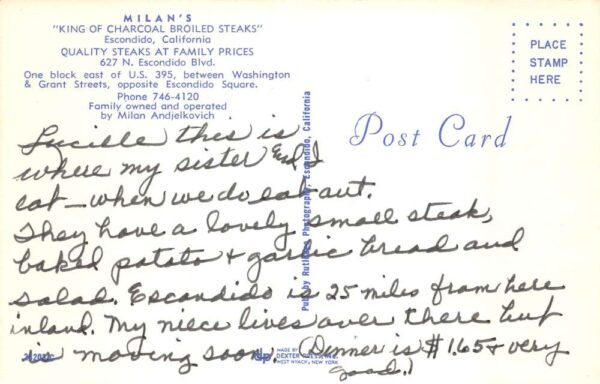 MILAN'S
"KING OF CHARCOAL BROILED STEAKS"
Escondido, California
QUALITY STEAKS AT FAMILY PRICES
627 N. Escondido Blvd.
One block east of U.S. 395, between Washington
& Grant Streets, opposite Escondido Square.
Phone 746-4120
Family owned and operated
by Milan Andjelkovich
PLACE
STAMP
HERE
Post Card
Lucille this is
where my sister and I
eat – when we do eat out.
They have a lovely small steak,
baked potato + garlic bread and
salad. Escondido is 25 miles from here
inland. My niece lives over there but
is moving soon. (Dinner is $1.65 + very
good.)
Pub. by Rutledge Photography, Escondido, California
MADE BY
DEXTER PRESS, INC.
WEST NYACK, NEW YORK